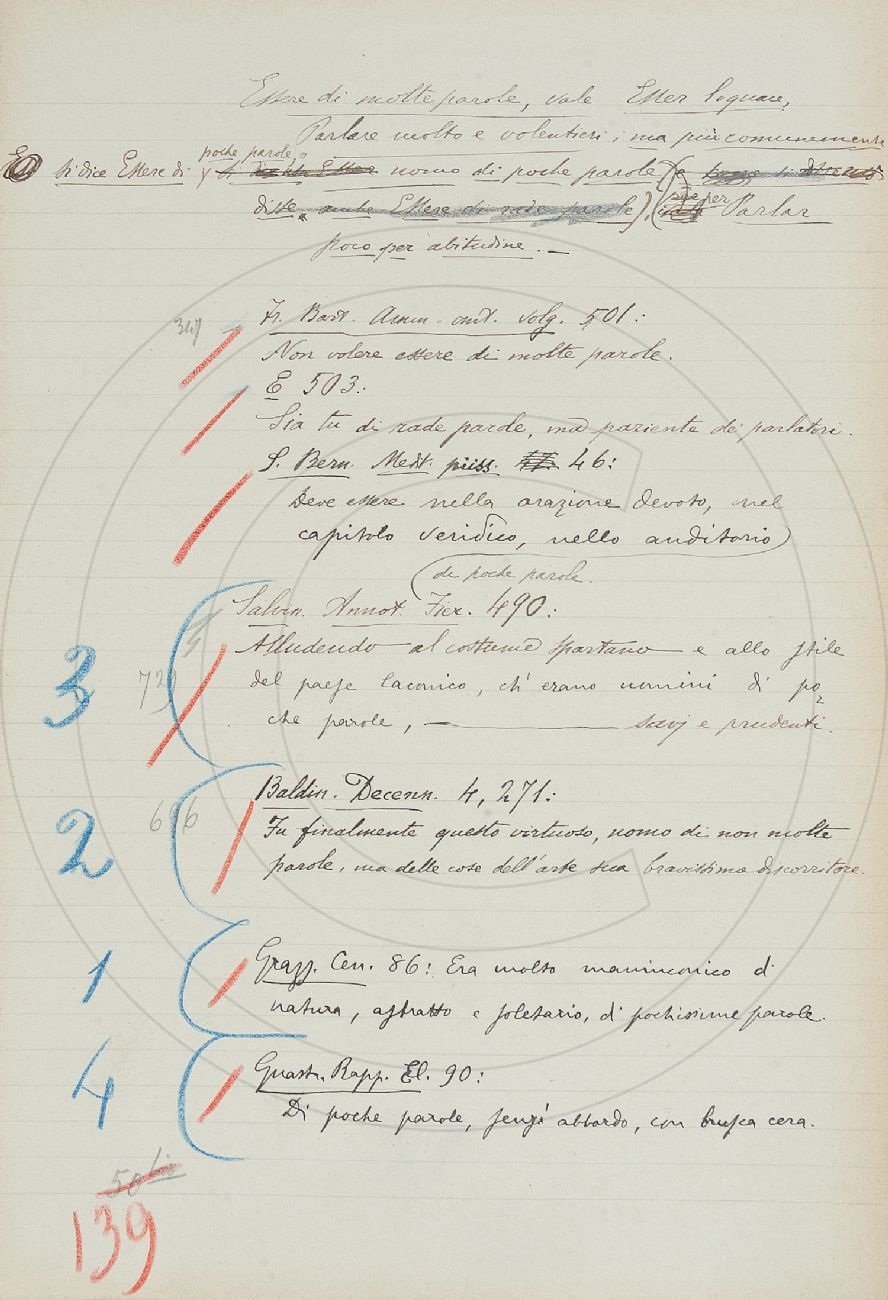 Essere di molte parole, vale Esser loquace,
Parlare molto e volentieri; ma più comunemente
si dice Essere di poche parole, o uomo di poche parole
disse, anche Essere di rade parole), per Parlar
poco per abitudine. —
347
Fr. Bart. Amm. ant. volg. 501:
Non volere essere di molte parole.
E 503:
Sia tu di rade parole, ma paziente de' parlatori.
S. Bern. Medit. piiss. 46:
Deve essere nella orazione devoto, nel
capitolo veridico, nello auditorio
di poche parole.
Salvin. Annot. Fier. 490:
3 729 Alludendo al costume spartano e allo stile
del paese laconico, ch' erano uomini di po-
che parole, — savj e prudenti.
Baldin. Decenn. 4, 271:
2 696 Fu finalmente questo virtuoso, uomo di non molte
parole, ma delle cose dell'arte sua bravissimo discorritore.
1 Grazz. Cen. 86: Era molto maninconico di
natura, astratto e soletario, di pochissime parole.
4 Guast. Rapp. El. 90:
Di poche parole, senz' abbordo, con brusca cera.
50 bis
139